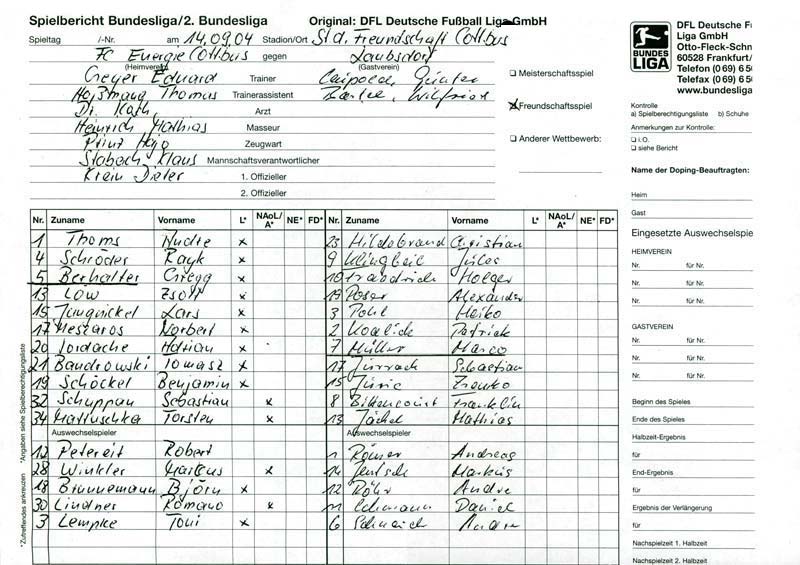 Spielbericht Bundesliga/2. Bundesliga Original: DFL Deutsche Fußball Liga GmbH
Spieltag /-Nr. am 14.09.04 Stadion/Ort Std. Freundschaft Cottbus
FC Energie Cottbus gegen Laubsdorf
(Heimverein) (Gastverein)
Geyer Eduard Trainer Günter
Thomas Trainerassistent Wilfried
Dr. Koth, Arzt
Heinrich Mathias Masseur
Prinz Hajo Zeugwart
Stabach Klaus Mannschaftsverantwortlicher
Krein Dieter 1. Offizieller
2. Offizieller
☐ Meisterschaftsspiel
☒ Freundschaftsspiel
☐ Anderer Wettbewerb:
BUNDES LIGA
DFL Deutsche Fu
Liga GmbH
Otto-Fleck-Schn
60528 Frankfurt/
Telefon (0 69) 6 50
Telefax (0 69) 6 50
www.bundesliga
Kontrolle
a) Spielberechtigungsliste b) Schuhe
Anmerkungen zur Kontrolle:
☐ i.O.
☐ siehe Bericht
Name der Doping-Beauftragten:
Heim
Gast
Nr. Zuname Vorname L* NAoL/A* NE* FD* Nr. Zuname Vorname L* NAoL/A* NE* FD*
1 Thoms Nudte x 23 Hildebrand Christian
4 Schröder Rayk x 9 Klingbeil Jules
5 Berhalter Gregg x 10 Holger
13 Löw Zsolt x 19 Poser Alexander
15 Jungnickel Lars x 3 Pohl Heiko
17 Meszaros Norbert x 2 Patrick
20 Iordache Adrian x 7 Müller Marco
21 Bandrowski Tomasz x 17 Sebastian
19 Schöckel Benjamin x 15
32 Schuppan Sebastian x 8 Bittencourt Franklin
34 Mattuschka Torsten x 13 Jäckel Mathias
Auswechselspieler Auswechselspieler
12 Petereit Robert 1 Römer Andreas
28 Winkler Markus x 14 Jentsch Markus
18 Brunnemann Björn x 12 Röhr Andre
30 Lindner Romano x 11 Daniel
3 Lempke Toni x 6 Andre
Eingesetzte Auswechselspie
HEIMVEREIN
Nr. für Nr.
Nr. für Nr.
Nr. für Nr.
GASTVEREIN
Nr. für Nr.
Nr. für Nr.
Nr. für Nr.
Beginn des Spieles
Ende des Spieles
Halbzeit-Ergebnis
für
End-Ergebnis
für
Ergebnis der Verlängerung
für
Nachspielzeit 1. Halbzeit
Nachspielzeit 2. Halbzeit
*Zutreffendes ankreuzen *Angaben siehe Spielberechtigungsliste